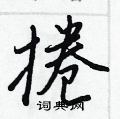 捲
词典网